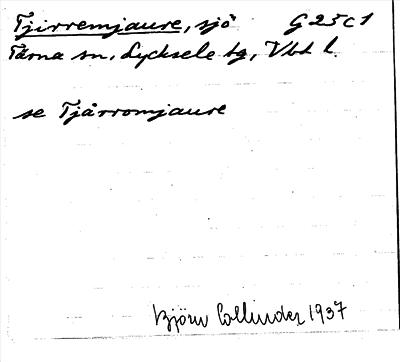 Tjirremjaure, sjö G 25 c 1
Tärna sn, Lycksele lg, Vbt l.
se Tjårromjaure
Björn Collinder 1937